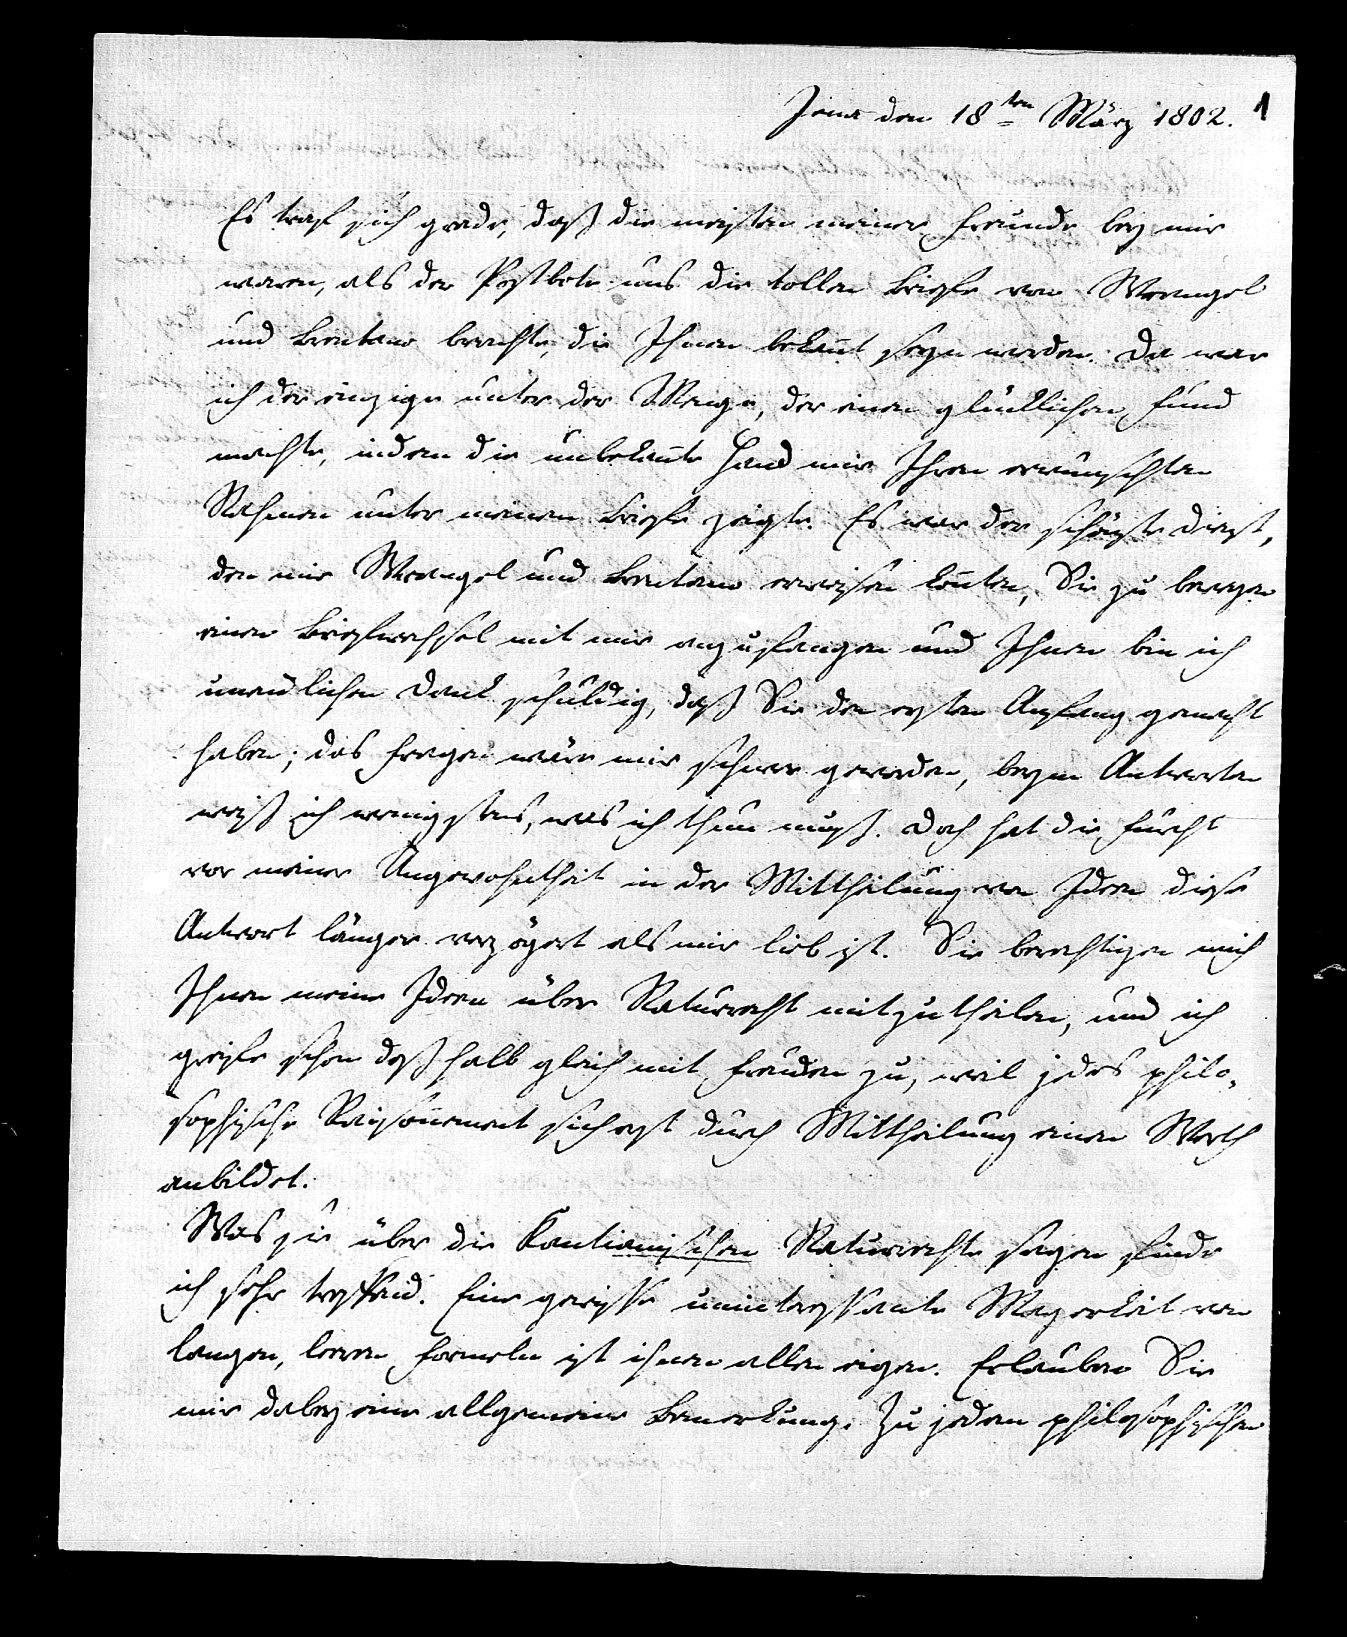 Jena den 18ten März 1802. 1
Es traf sich grade, daß die meisten meiner Freunde bey mir
waren, als der Postbote uns die tollen Briefe von Wrangel
und Brentano brachte, die Ihnen bekan̅t seyn werden. Da war
ich der einzige unter der Menge, der einen glücklichen Fund
machte, indem die unbekan̅te Hand mir Ihren erwünschten
Nahmen unter meinem Briefe zeigte. Es war der schönste Dienst,
den mir Wrangel und Brentano erweisen kon̅ten, Sie zu bewegen
einen Briefwechsel mit mir anzufangen und Ihnen bin ich
unendlichen Dank schuldig, daß Sie den ersten Anfang gemacht
haben; das Fragen wäre mir schwer geworden, beym Antworten
weiß ich wenigstens, was ich thun muß. Doch hat die Furcht
vor meiner Ungewohntheit in der Mittheilung von Ideen diese
Antwort länger verzögert als mir lieb ist. Sie berechtigen mich
Ihnen meine Ideen über Naturrecht mitzutheilen, und ich
greife schon deßhalb gleich mit Freuden zu, weil jedes philo-
sophische Raison̅ement sich erst durch Mittheilung einen Werth
anbildet.
Was sie über die Kantianischen Naturrechte sagen finde
ich sehr treffend. Eine gewisse uninteressante Magerkeit von
langen, leeren Formeln ist ihnen allen eigen. Erlauben Sie
mir dabey eine allgemeine Bemerkung. Zu jedem philosophischen